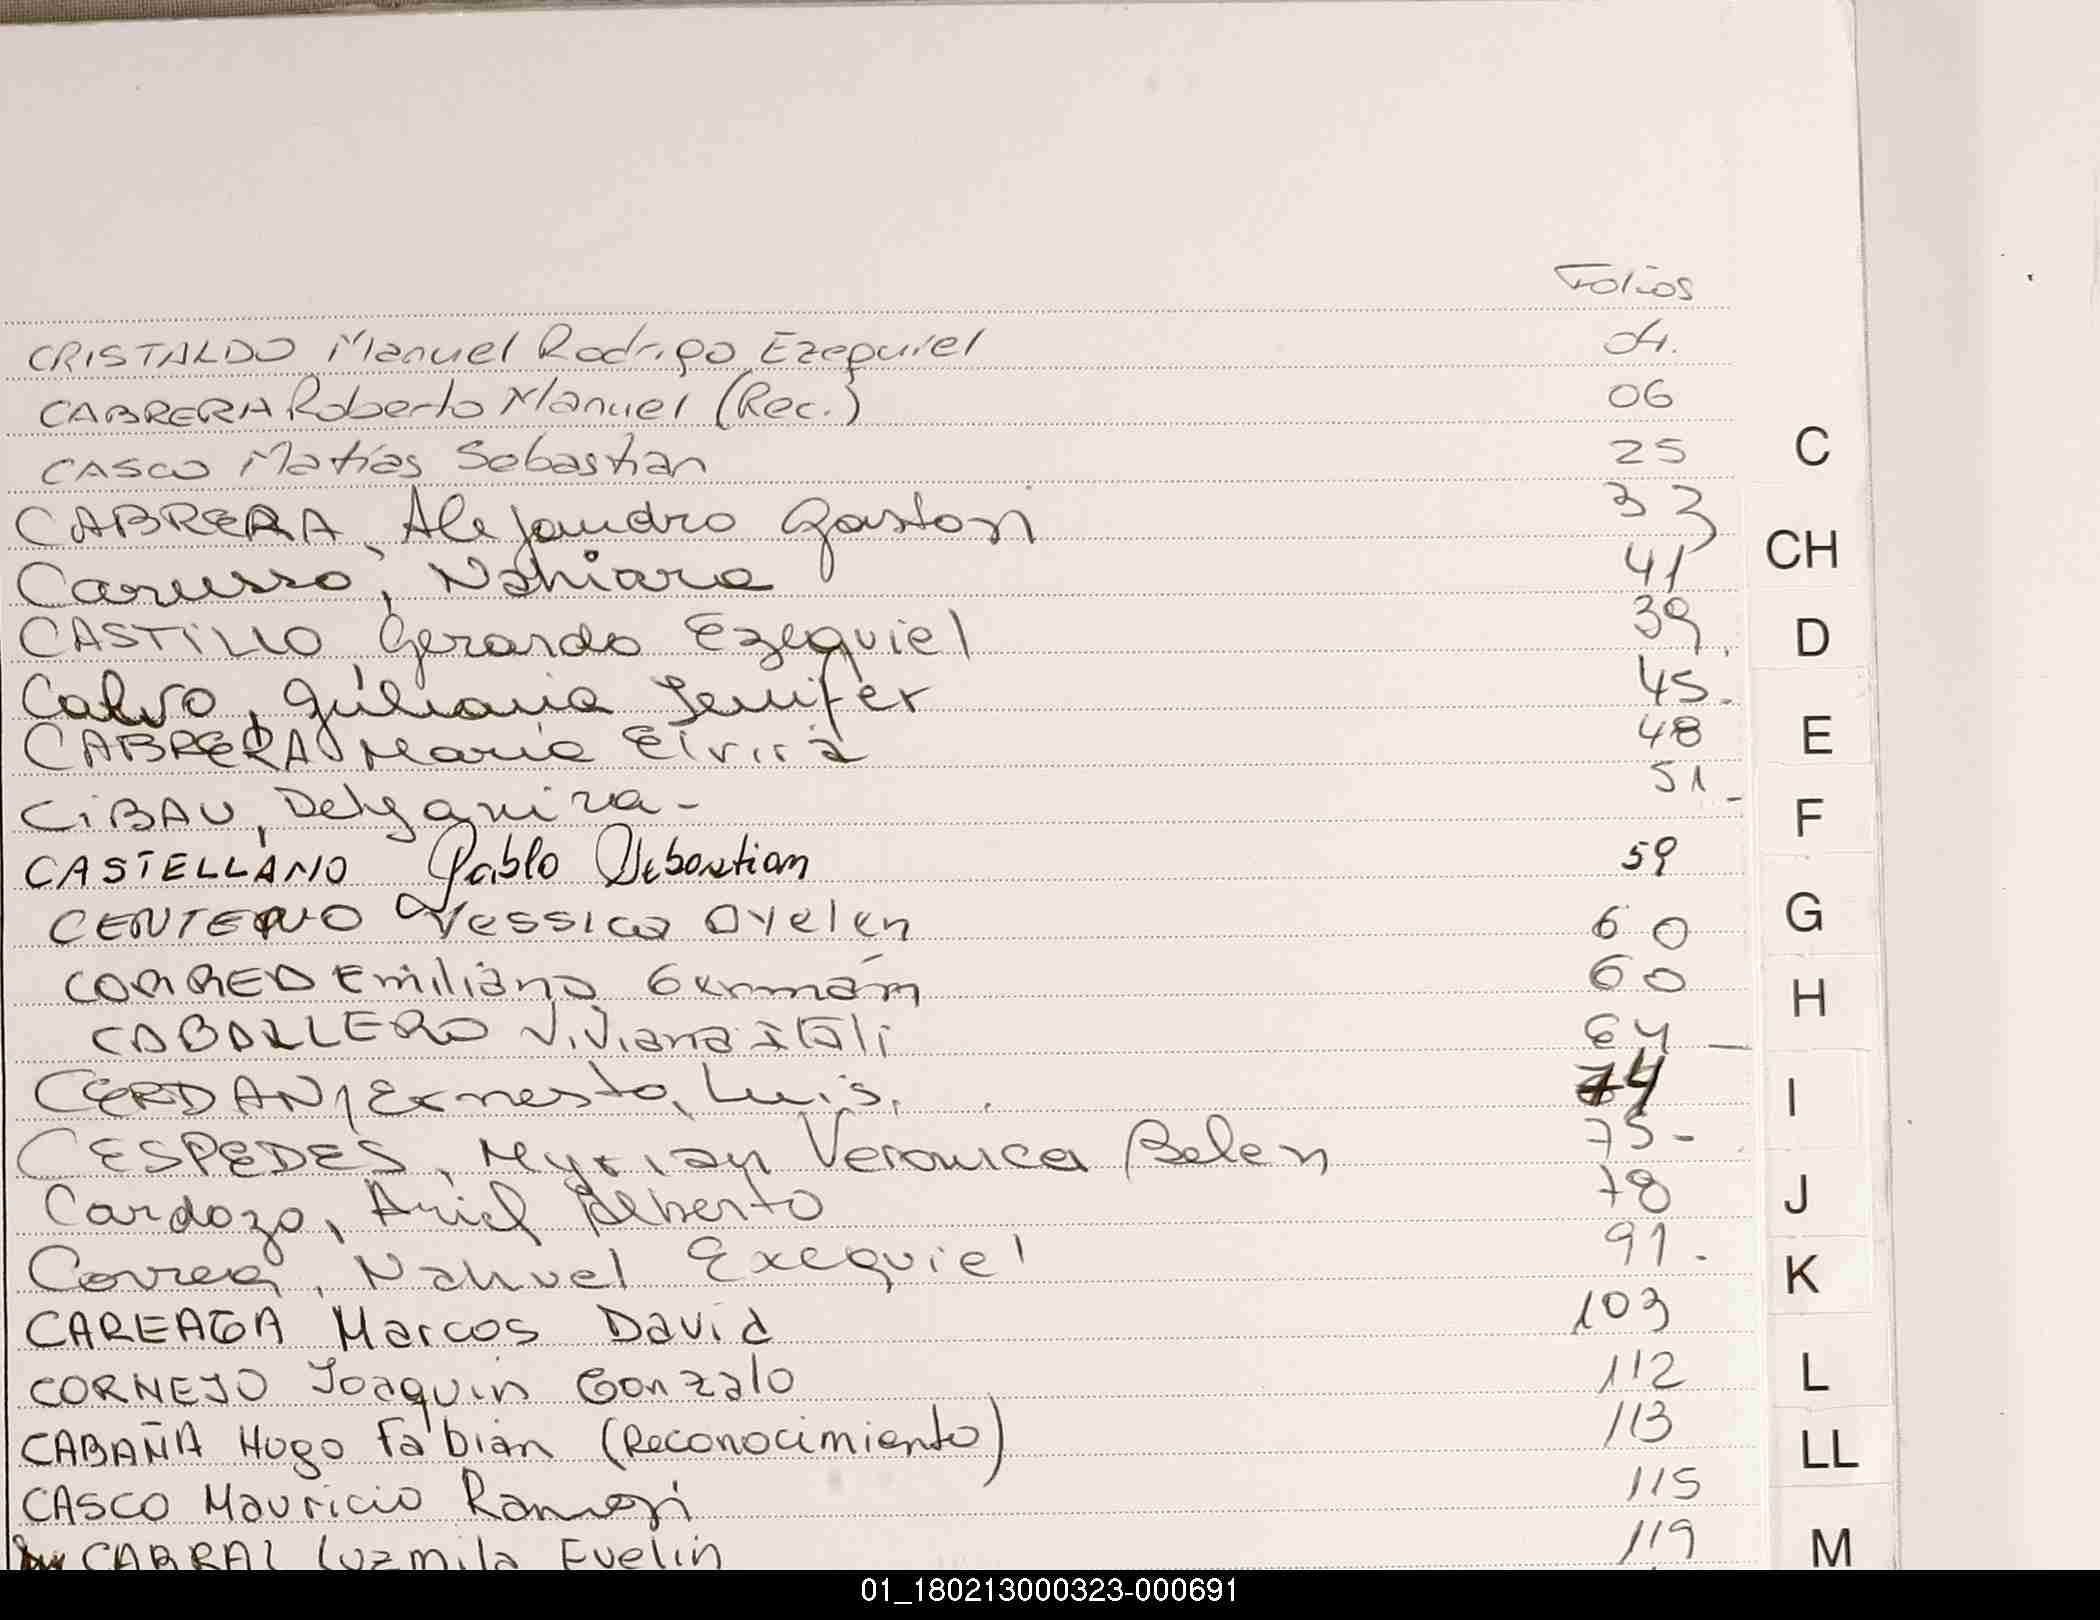 Folios
CRISTALDO Manuel Rodrigo Ezequiel 04.
CABRERA Roberto Manuel (Rec.) 06
CASCO Matías Sebastian 25
CABRERA, Alejandro Gaston 33
Carusso, Nahiara 41
CASTILLO, Gerardo Ezequiel 39.
Calvo, Giuliana Jenifer 45.
CABRERA Maria Elvira 48
CIBAU, 51-
CASTELLANO Pablo Sebastian 59
CENTENO Yessica Ayelen 60
CORRED Emiliano Germán 60
CABALLERO Viviana Itatí 64-
CERDAN, Ernesto, Luis. 74
CESPEDES, Myrian Veronica Belen 75-
Cardozo, Ariel Alberto 78
Correa, Nahuel Exequiel 91.
CAREAGA Marcos David 103
CORNEJO Joaquin Gonzalo 112
CABAÑA Hugo Fabian (Reconocimiento) 113
CASCO Mauricio Ramon 115
CABRAL Luzmila Evelin 119
C
CH
D
E
F
G
H
I
J
K
L
LL
M
01_180213000323-000691